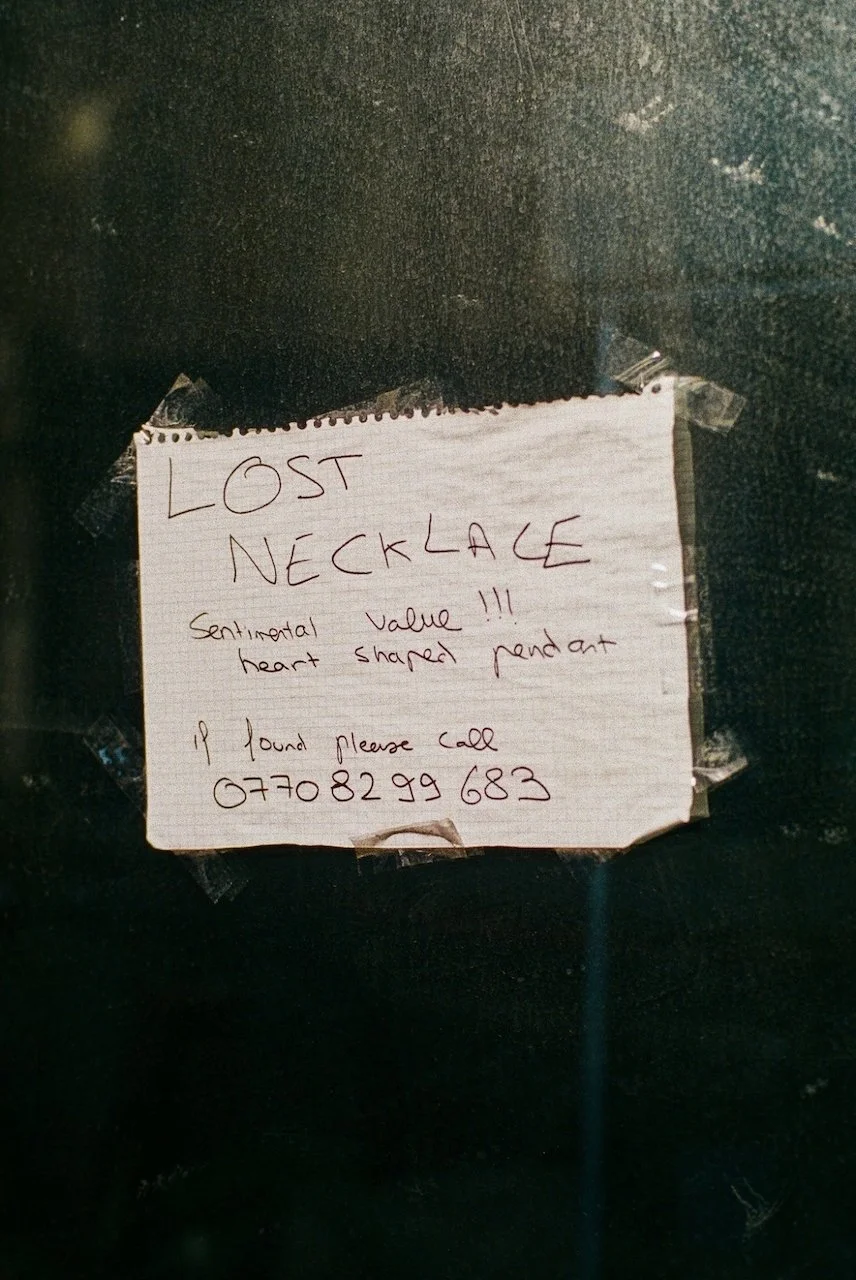 LOST
NECKLACE
Sentimental value !!!
heart shaped pendant
if found please call
0770 82 99 683